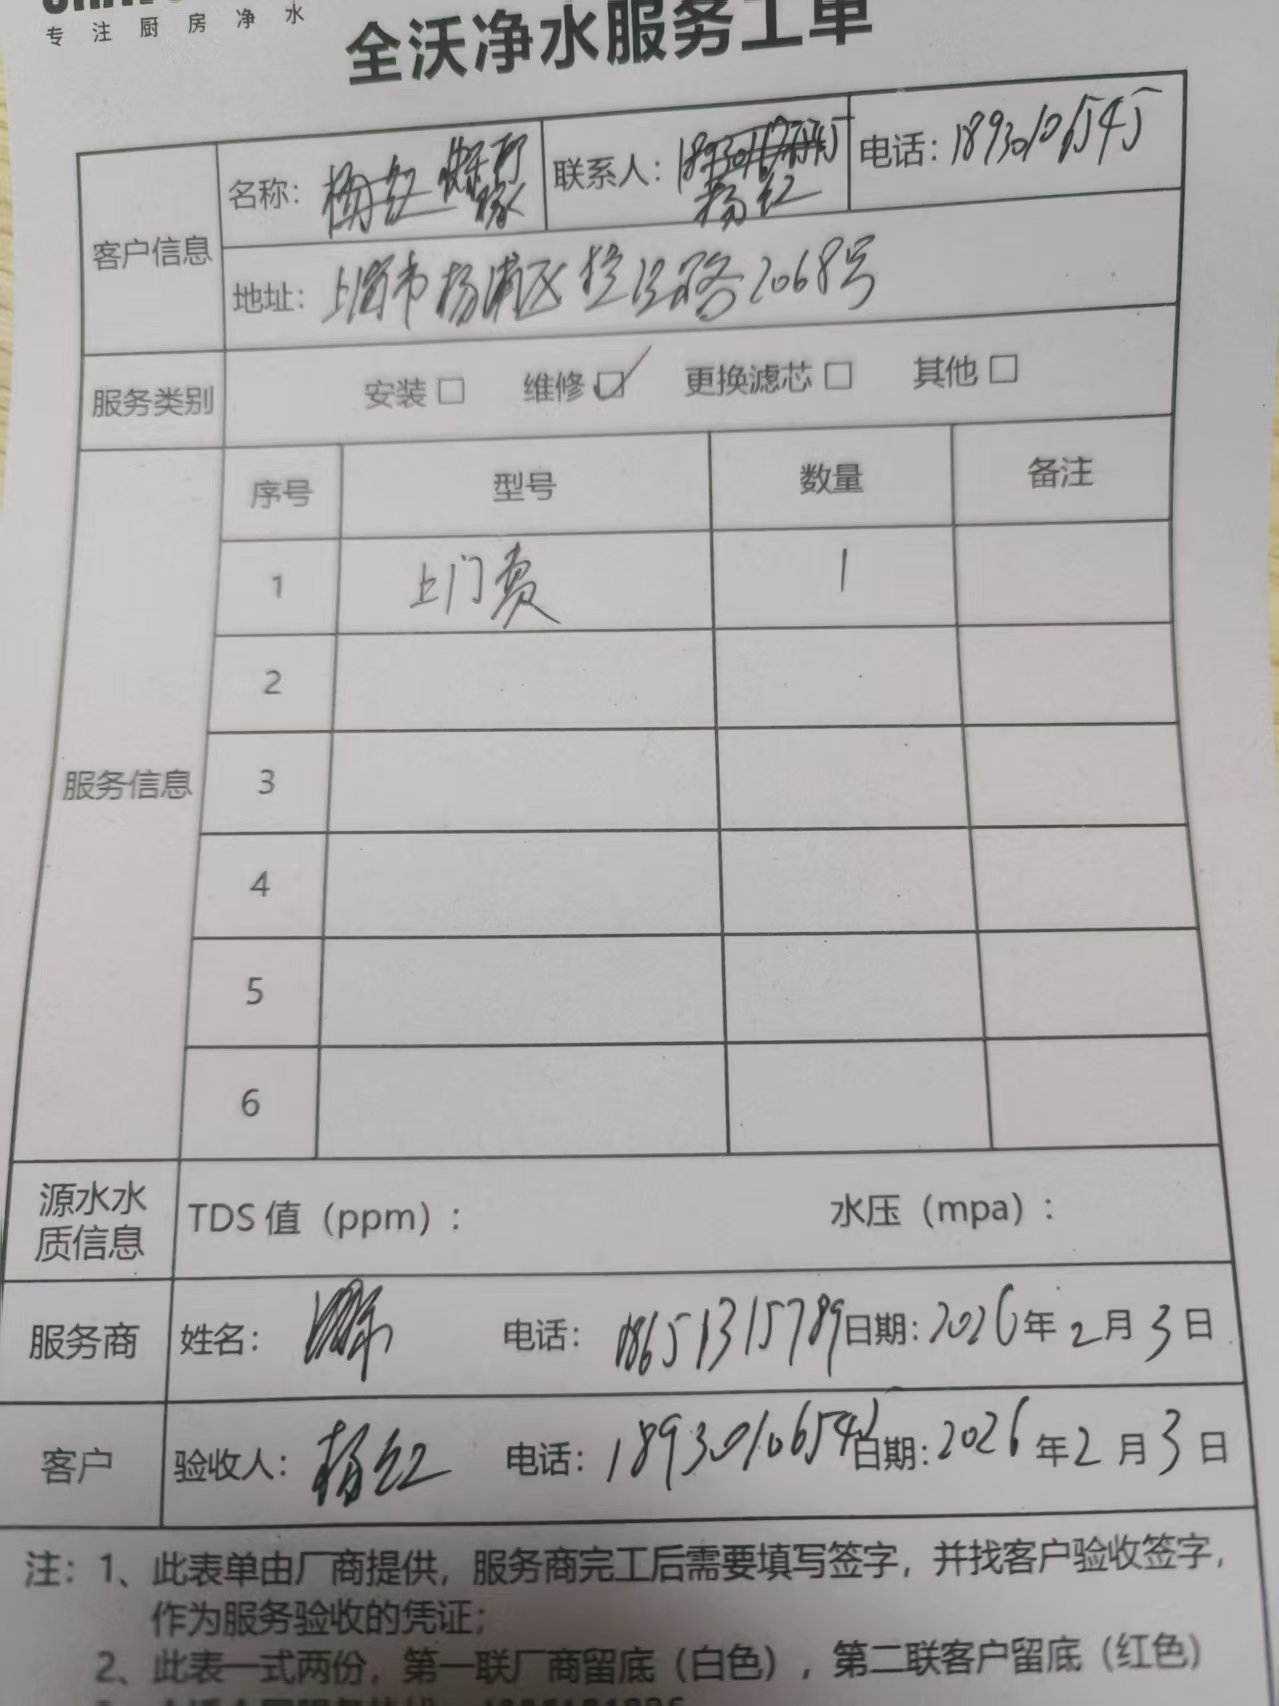 专注厨房净水
全沃净水服务工单
客户信息
名称: 联系人: 杨红 电话: 18930106545
地址: 上海市杨浦区松江路2068号
服务类别 安装□ 维修☑ 更换滤芯□ 其他□
服务信息
序号 型号 数量 备注
1 上门费 1
2
3
4
5
6
源水水质信息 TDS 值（ppm）: 水压（mpa）:
服务商 姓名: 电话: 18651315789 日期: 2026年2月3日
客户 验收人: 杨红 电话: 18930106545 日期: 2026年2月3日
注: 1、此表单由厂商提供，服务商完工后需要填写签字，并找客户验收签字，
作为服务验收的凭证；
2、此表一式两份，第一联厂商留底（白色），第二联客户留底（红色）